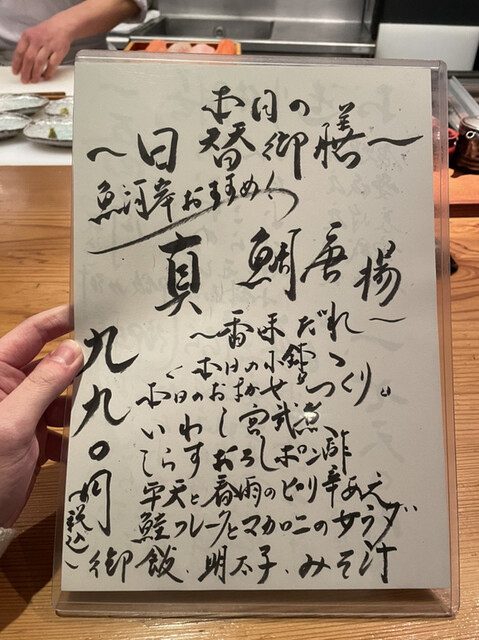 本日の
〜日替御膳〜
魚河岸おすすめ
真鯛唐揚
〜香味だれ〜
本日のお
つくり
いわし宮武煮
しらすおろしポン酢
平天と春雨のピリ辛あえ
鮭フレークとマカロニのサラダ
御飯、明太子、みそ汁
九九〇円
(税込)